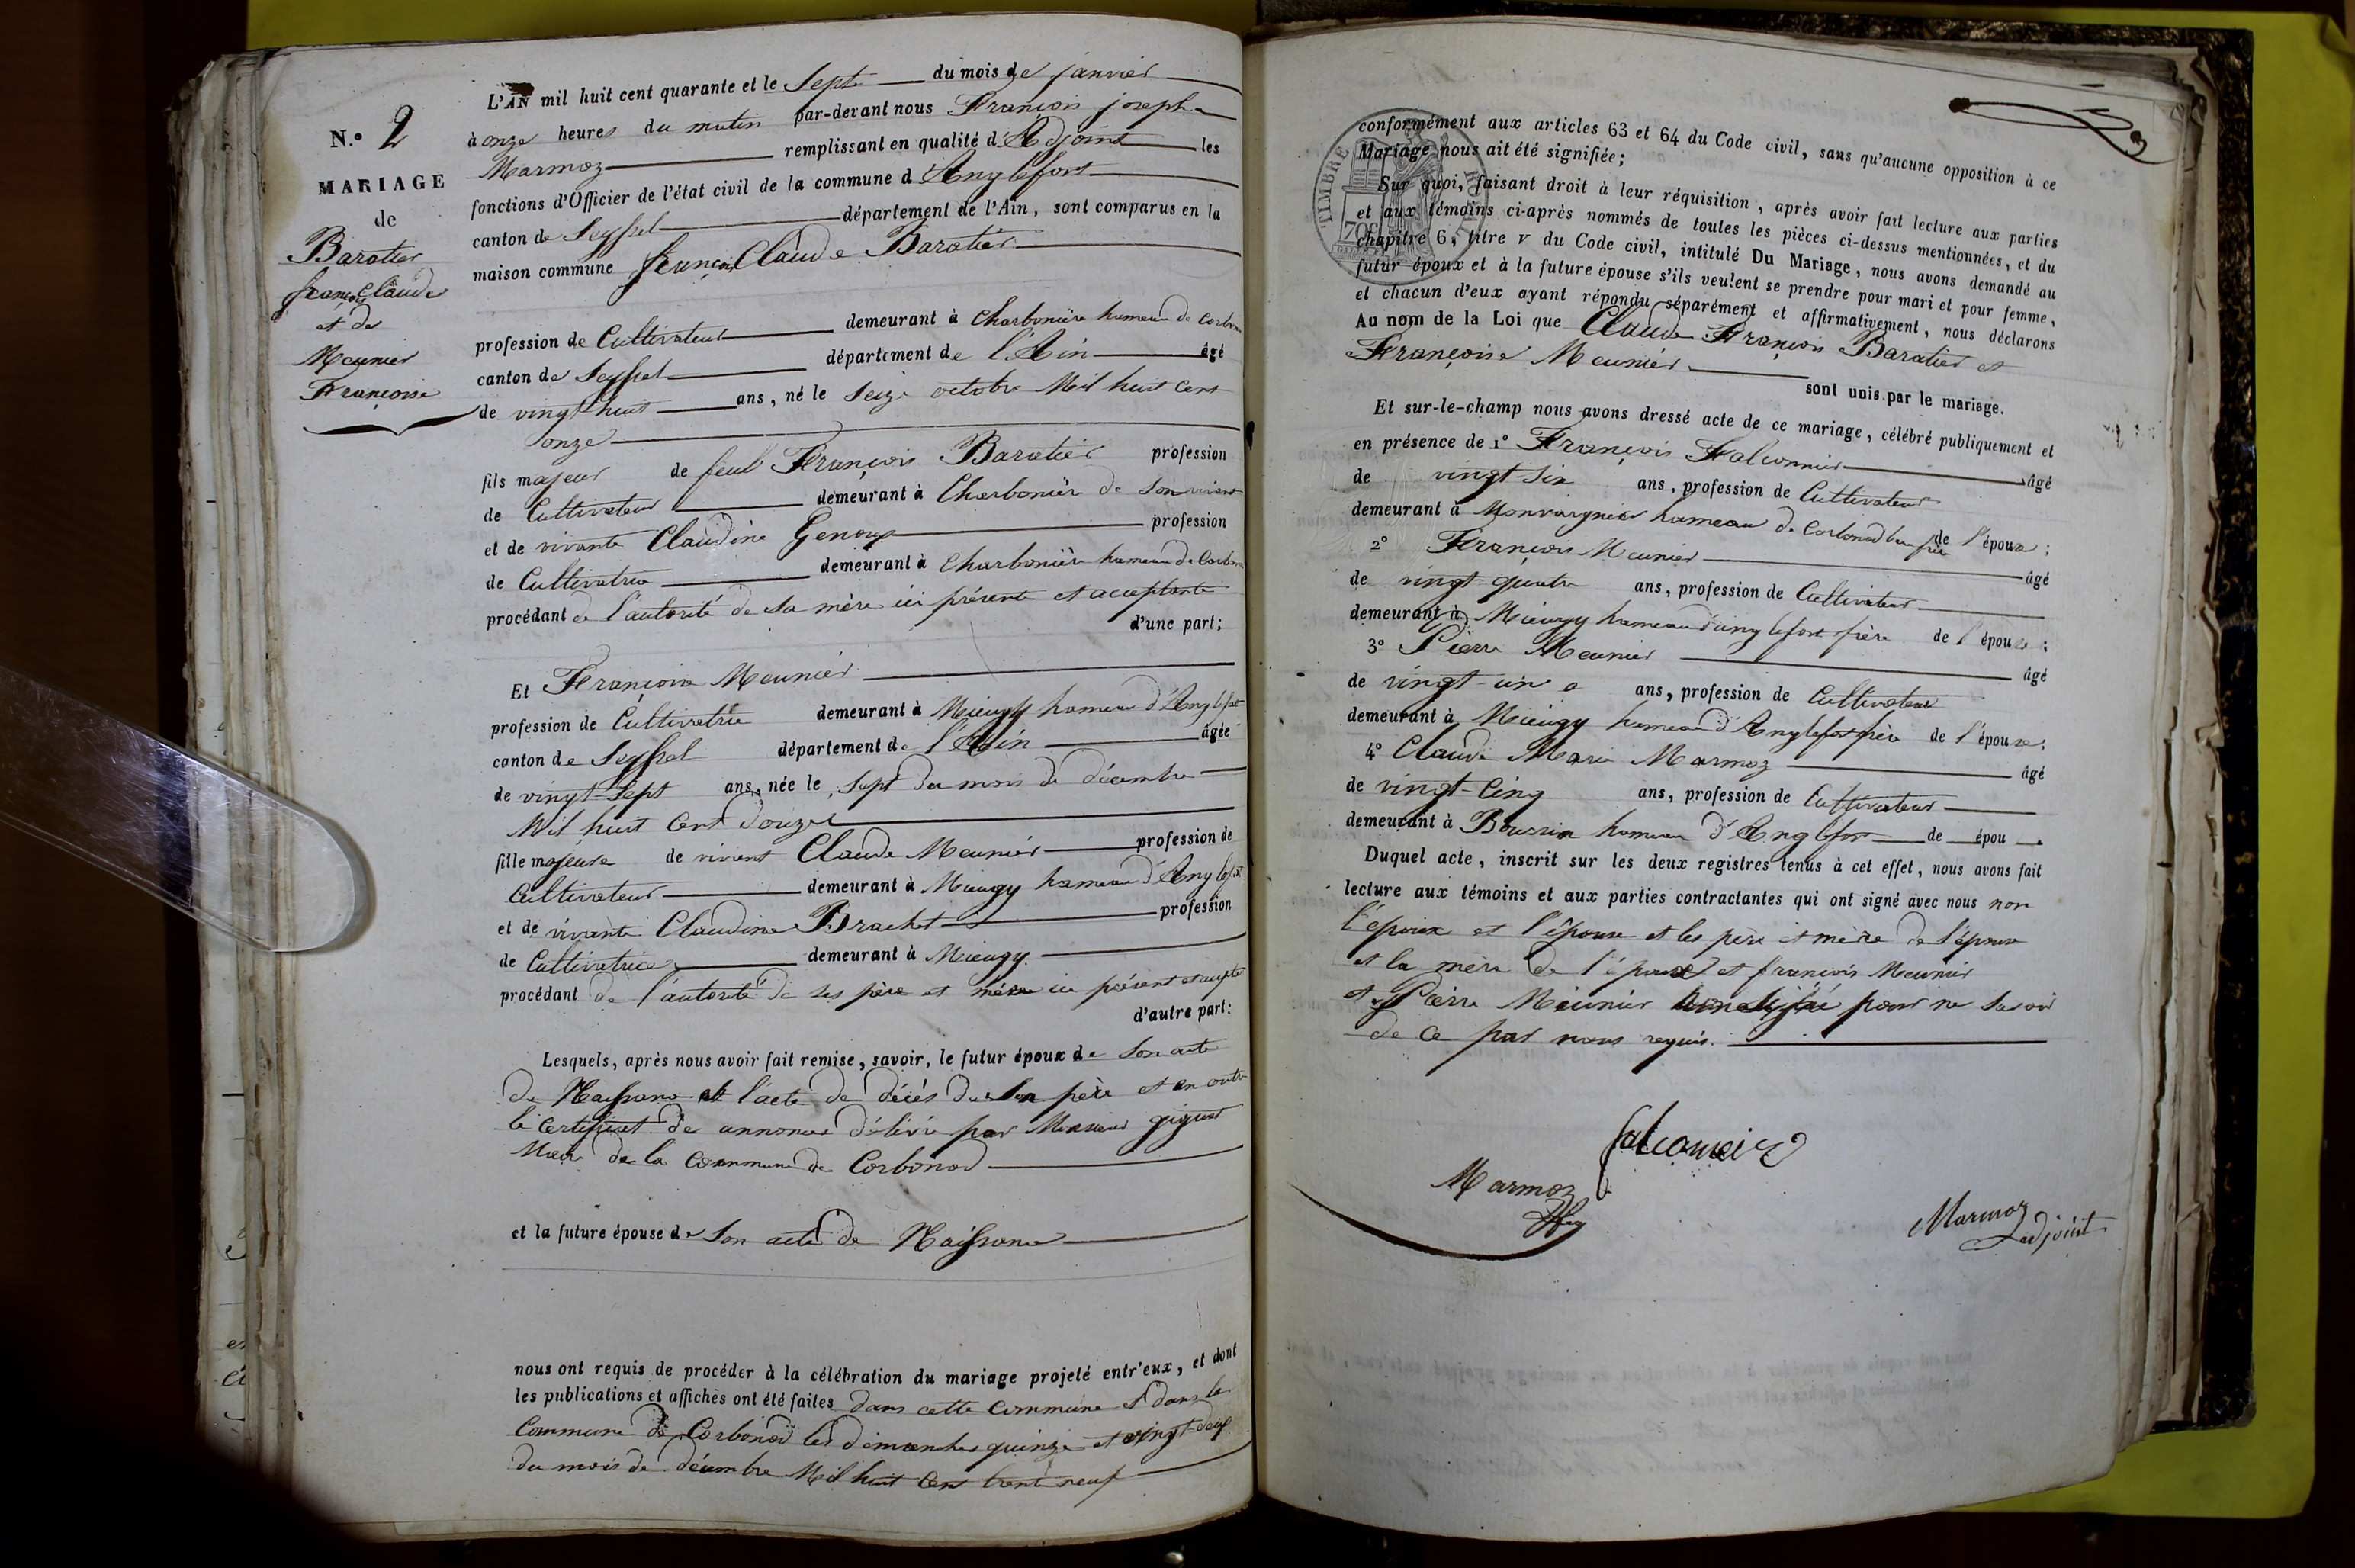 N.o 2
MARIAGE
de
Baratier
françois Claude
et de
Meunier
Françoise
L'AN mil huit cent quarante et le Sept du mois de janvier
à onze heures du matin par-devant nous François joseph
Marmoz remplissant en qualité d'Adjoint les
fonctions d'Officier de l'état civil de la commune d'Anglefort
canton de Seyssel département de l'Ain, sont comparus en la
maison commune françois Claude Baratier
profession de Cultivateur demeurant à Charbonière hameau de Corbon
canton de Seyssel département de l'Ain âgé
de vingt-huit ans, né le Seize octobre Mil huit Cent
onze
fils majeur de feu François Baratier profession
de Cultivateur demeurant à Charbonière de son vivant
et de vivante Claudine Genoux profession
de Cultivatrice demeurant à Charbonière hameau de Corbon
procédant de l'autorité de sa mère ici présente et acceptante
d'une part;
Et Françoise Meunier
profession de Cultivatrice demeurant à Mieugy hameau d'Anglefort
canton de Seyssel département de l'Ain âgée
de vingt-sept ans, née le Sept du mois de décembre
Mil huit Cent douze
fille majeure de vivant Claude Meunier profession de
Cultivateur demeurant à Mieugy hameau d'Anglefort
et de vivante Claudine Brachet profession
de Cultivatrice demeurant à Mieugy
procédant de l'autorité de ses père et mère ici présent et accept
d'autre part:
Lesquels, après nous avoir fait remise, savoir, le futur époux de Son acte
de Naissance et l'acte de décés de son père et en outre
le Certificat de annonces délivré par Monsieur giguet
Maire de la Commune de Corbonod
et la future épouse de Son acte de Naissance
nous ont requis de procéder à la célébration du mariage projeté entr'eux, et dont
les publications et affiches ont été faites dans cette Commune et dans la
Commune de Corbonod les dimanches quinze et vingt-deux
du mois de décembre Mil huit Cent trente neuf
conformément aux articles 63 et 64 du Code civil, sans qu'aucune opposition à ce
Mariage nous ait été signifiée;
Sur quoi, faisant droit à leur réquisition, après avoir fait lecture aux parties
et aux témoins ci-après nommés de toutes les pièces ci-dessus mentionnées, et du
chapitre 6, titre v du Code civil, intitulé Du Mariage, nous avons demandé au
futur époux et à la future épouse s'ils veulent se prendre pour mari et pour femme,
et chacun d'eux ayant répondu séparément et affirmativement, nous déclarons
Au nom de la Loi que Claude François Baratier et
Françoise Meunier
sont unis par le mariage.
Et sur-le-champ nous avons dressé acte de ce mariage, célébré publiquement et
en présence de 1o François Falconnier âgé
de vingt-six ans, profession de Cultivateur
demeurant à hameau de Corbonod beau frère de l'époux;
2o François Meunier âgé
de vingt-quatre ans, profession de Cultivateur
demeurant à Mieugy hameau d'anglefort frère de l'épouse;
3o Pierre Meunier âgé
de vingt-un ans, profession de Cultivateur
demeurant à Mieugy hameau d'Anglefort frère de l'épouse;
4o Claude Marie Marmoz âgé
de vingt-Cinq ans, profession de Cultivateur
demeurant à Boursin hameau d'Anglefort de épou
Duquel acte, inscrit sur les deux registres tenus à cet effet, nous avons fait
lecture aux témoins et aux parties contractantes qui ont signé avec nous non
l'époux et l'épouse et les père et mère de l'épouse
et la mère de l'époux et françois Meunier
et Pierre Meunier pour ne savoir
de ce par nous requis.
falconnier
Marmoz
Marmoz
adjoint
TIMBRE ROYAL
70c